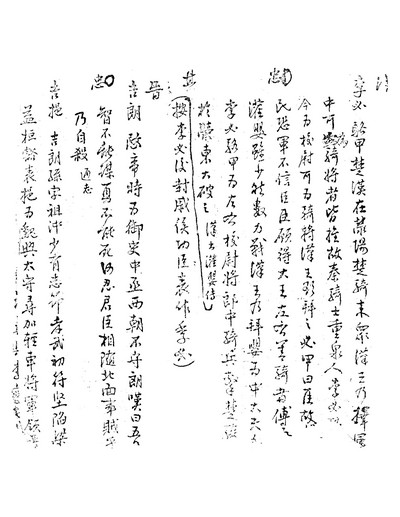 李必 駱甲 楚漢在滎陽楚騎来眾漢王乃擇軍
中可為騎將者皆推故秦騎士重泉人李必
今为校尉可为騎將漢王欲拜之必甲曰臣故
忠 民恐軍不信臣臣願得大王左右善騎者傅之
灌嬰雖少然數力戰漢王乃拜嬰为中大夫
李必駱甲为左右校尉將郎中騎兵擊楚騎
於滎東大破之(漢書灌嬰傳)
(按李必後封戚侯功臣表作季必)
晉
吉朗 愍帝時为御史中丞西朝不守朗嘆曰吾
忠 智不能謀勇不能死何忍君臣相隨北面事賊乎
乃自殺 通志
吉挹 吉朗孫字祖冲少有志節孝武初符堅陷梁
益桓豁表挹为魏興太守尋加輕車將軍領晉